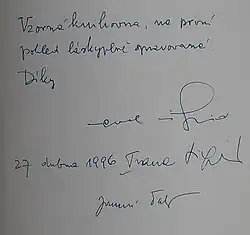 Vzorná knihovna, na první
pohled láskyplně opravovaná
Díky
27 dubna 1996 Ivana